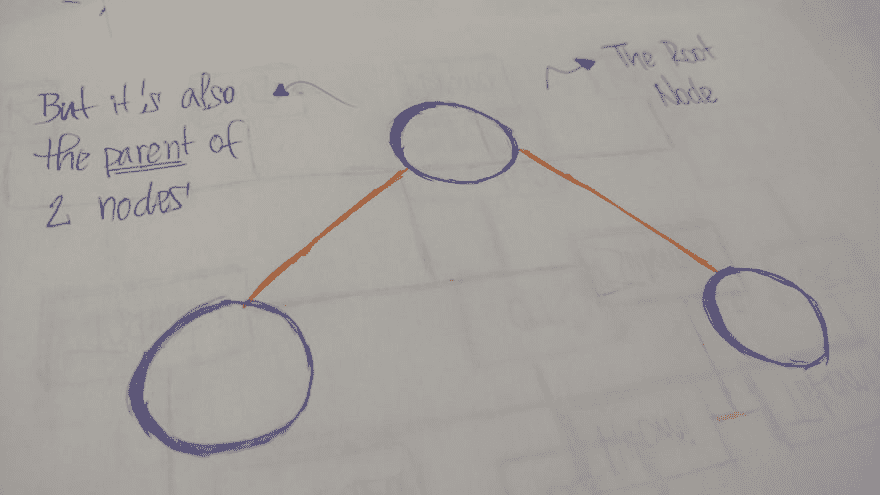 But it's also
the parent of
2 nodes'
The Root
Node